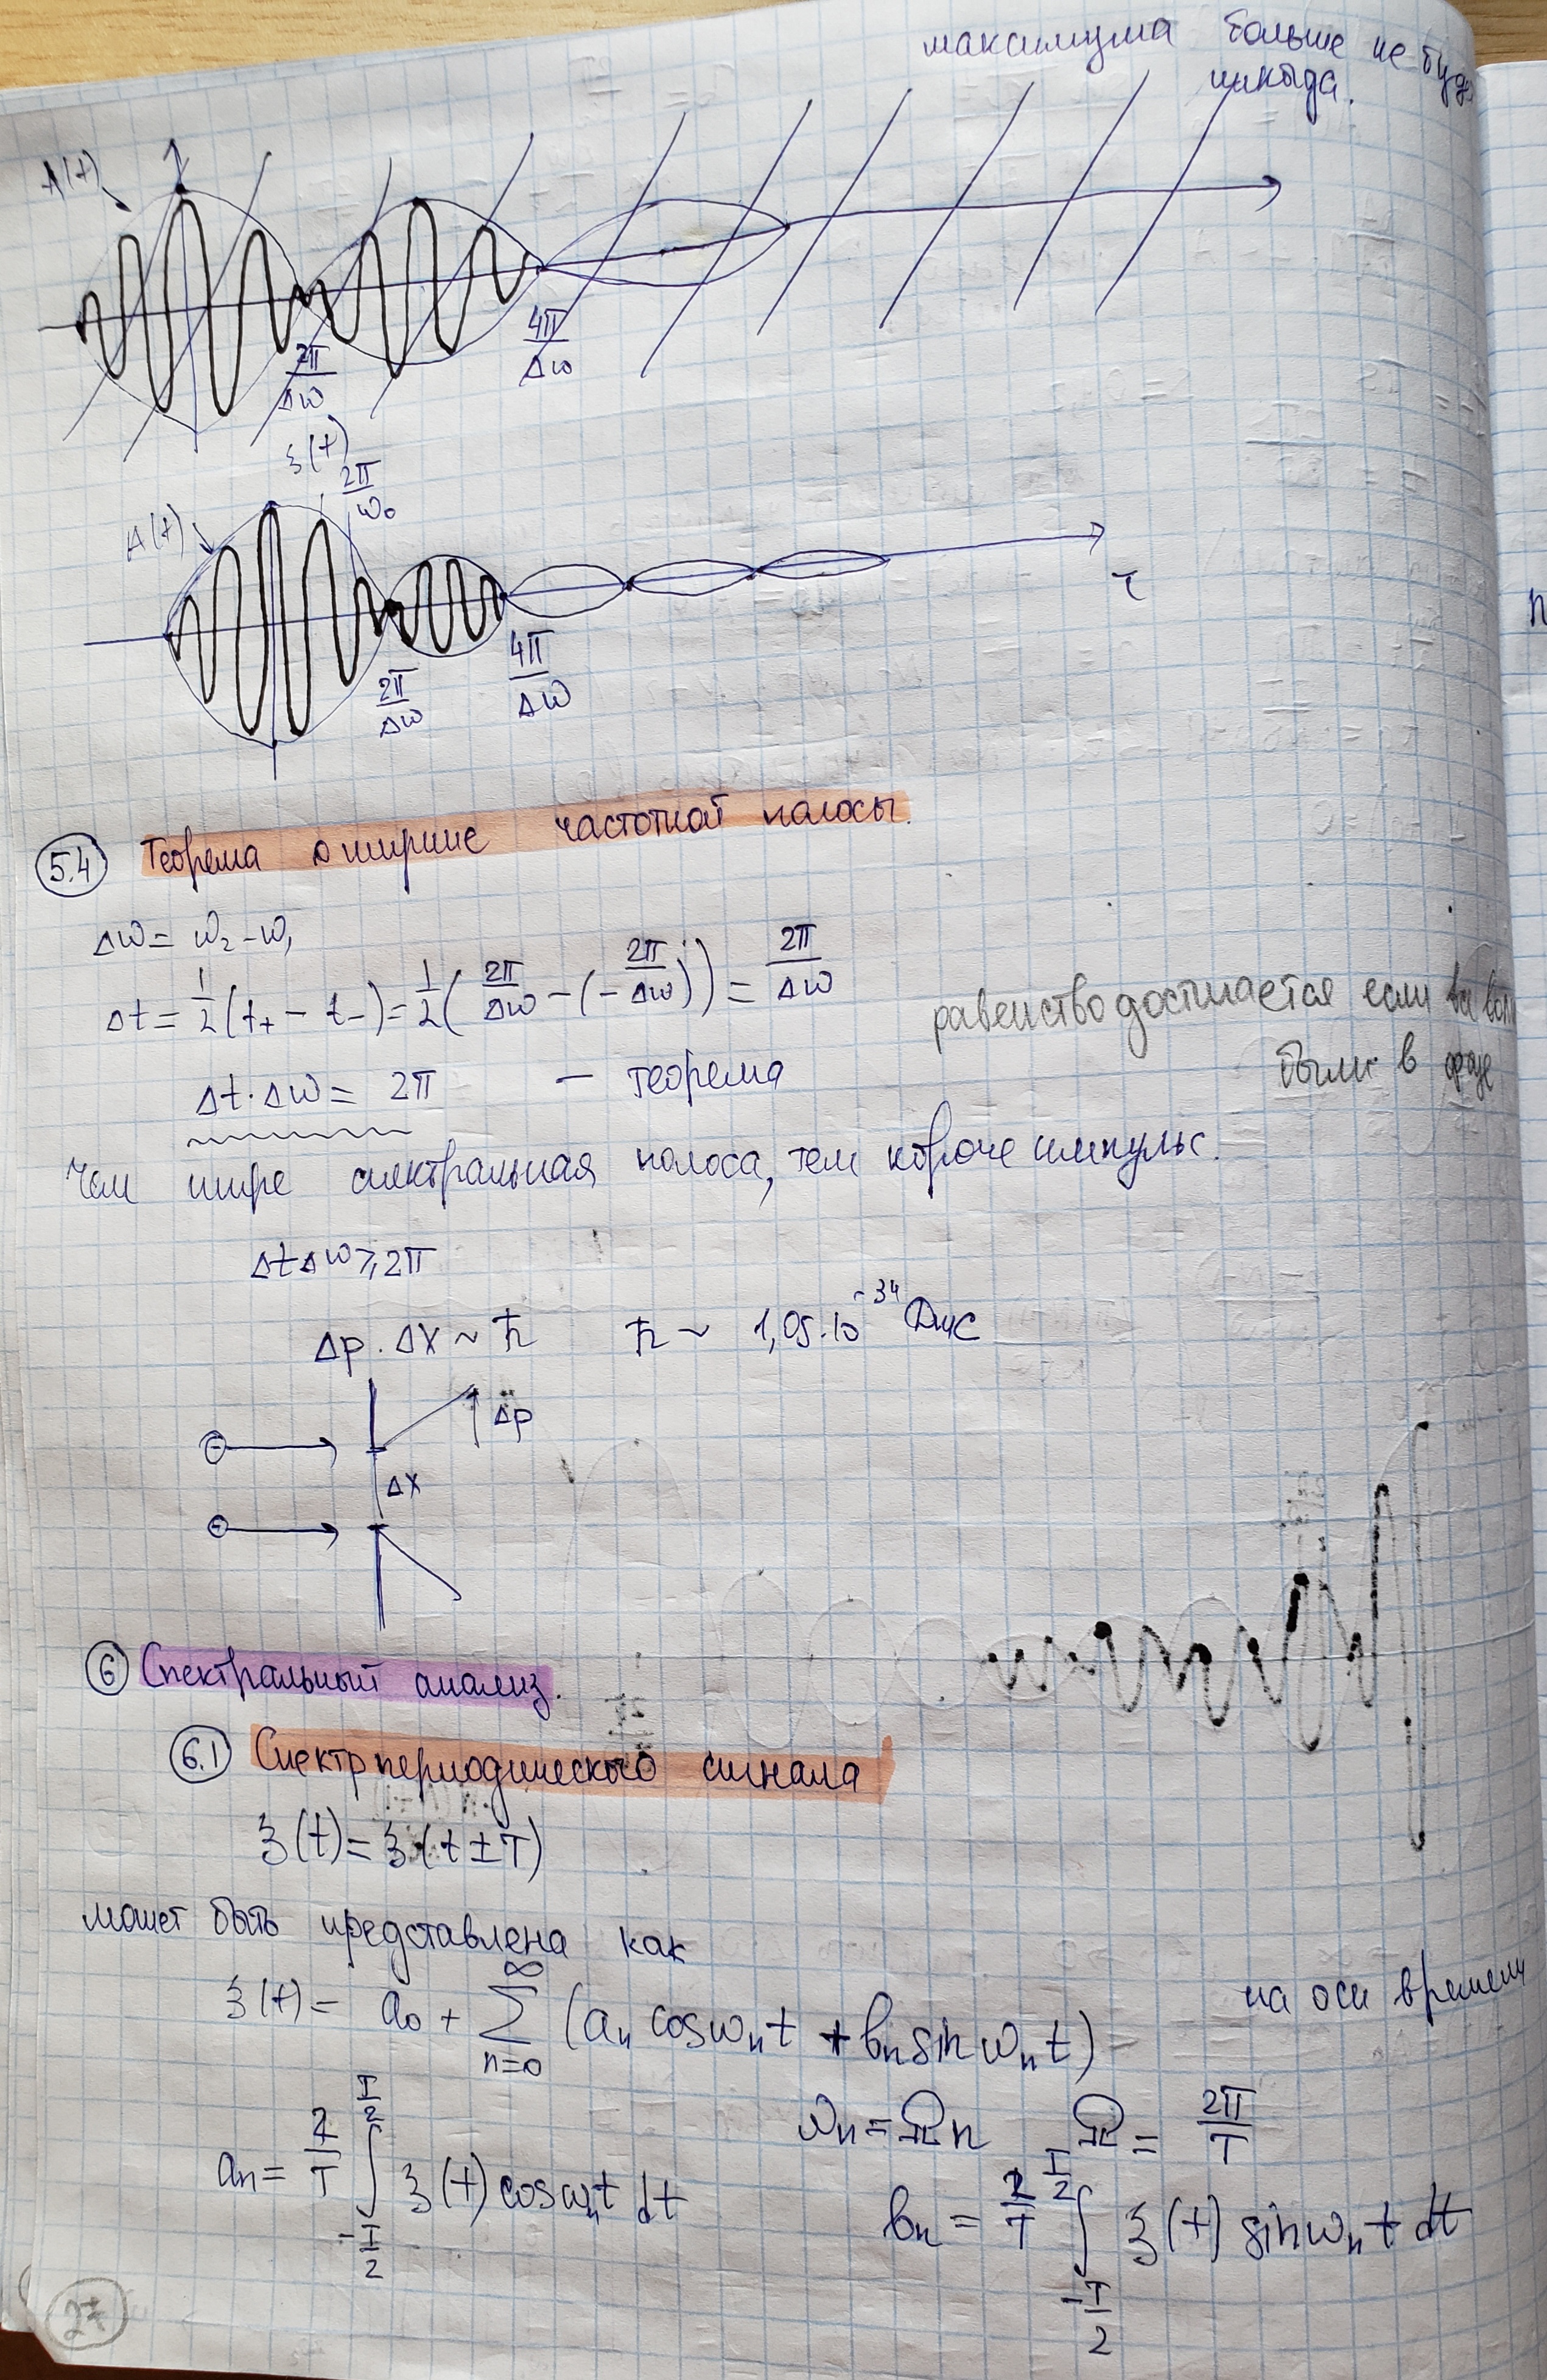 максимума больше не буд
никогда.
A(t)
2π/Δω
4π/Δω
ξ(t)
2π/ω₀
A(t)
τ
2π/Δω
4π/Δω
5.4 Теорема о ширине частотной полосы.
Δω = ω₂ - ω₁
Δt = 1/2 (t₊ - t₋) = 1/2 (2π/Δω - (-2π/Δω)) = 2π/Δω
равенство достигается если все
были в фазе
Δt · Δω = 2π - теорема
Чем шире спектральная полоса, тем короче импульс.
ΔtΔω ≥ 2π
Δp · Δx ~ ħ ħ ~ 1,05·10⁻³⁴ Джс
Δp
Δx
6 Спектральный анализ.
6.1 Спектр периодического сигнала
ξ(t) = ξ(t ± T)
может быть представлена как
на оси времени
ξ(t) = a₀ + ∑_{n=0}^{∞} (aₙ cosωₙt + bₙ sinωₙt)
ωₙ = Ωn Ω = 2π/T
aₙ = 2/T ∫_{-T/2}^{T/2} ξ(t) cosωₙt dt
bₙ = 2/T ∫_{-T/2}^{T/2} ξ(t) sinωₙt dt
27